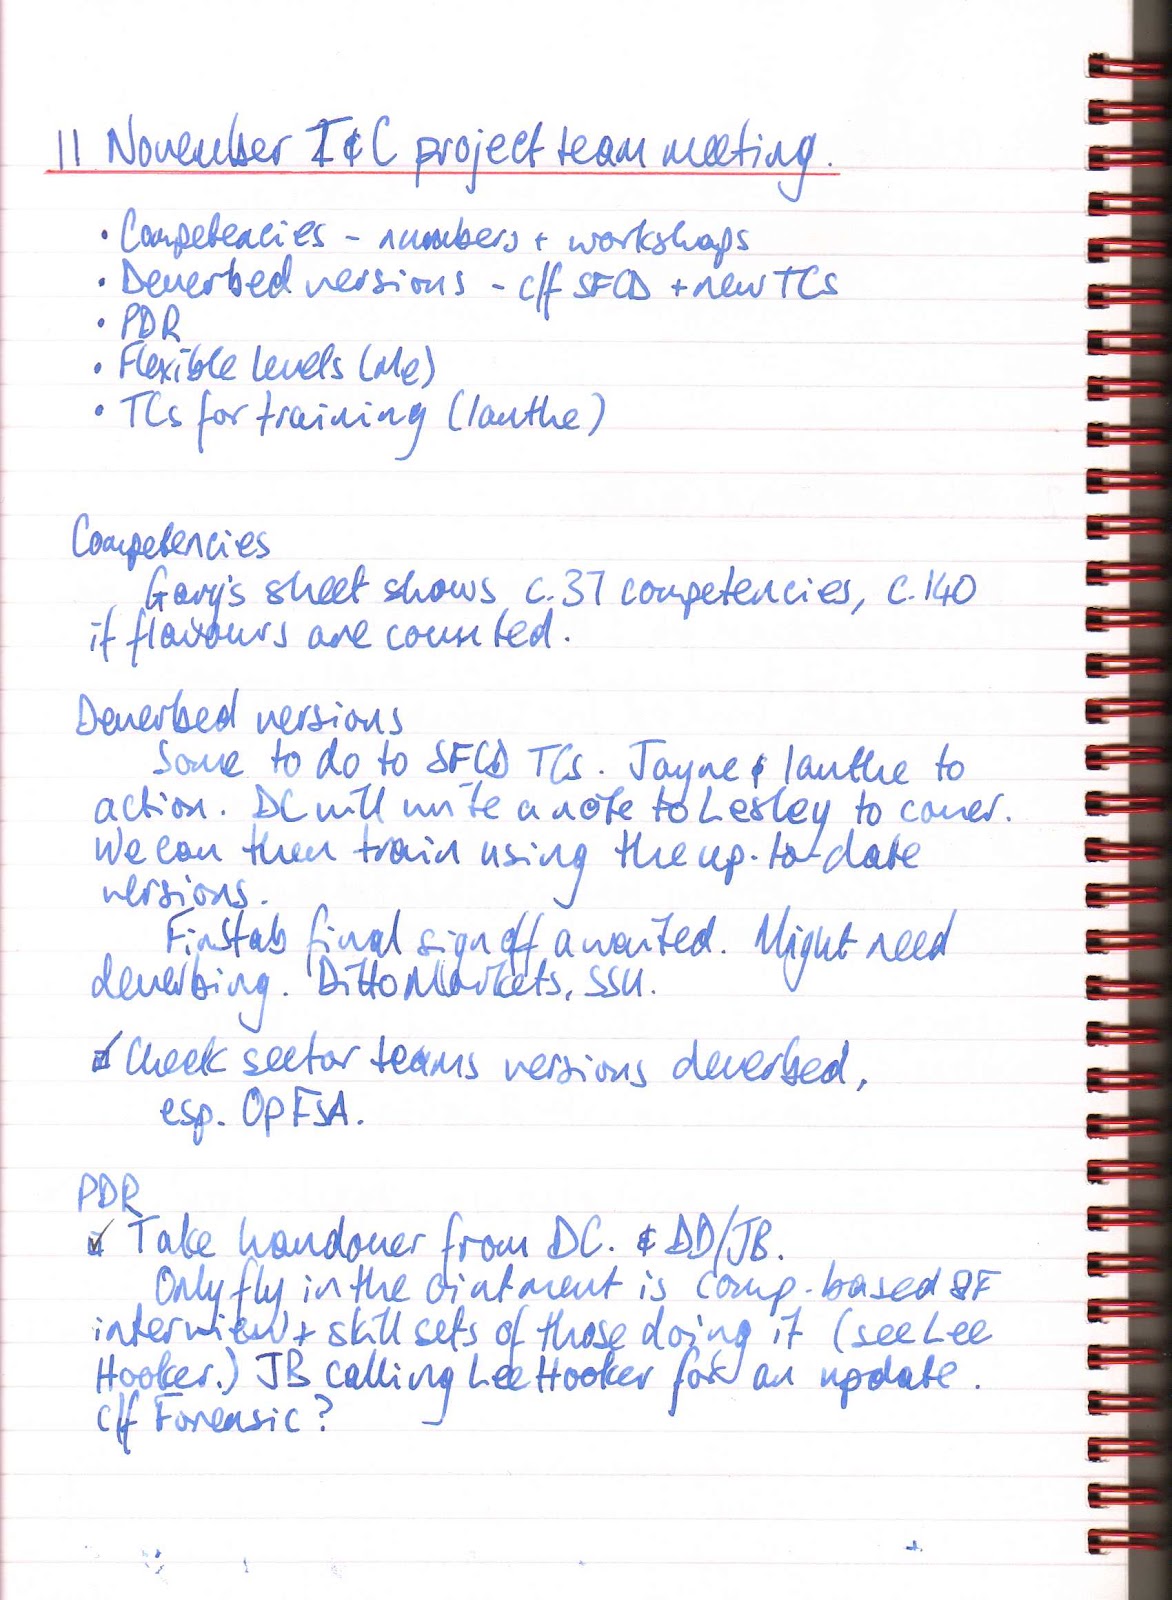 11 November T&C project team meeting.
• Competencies - numbers + workshops
• Deverbed versions - c/f SFCD + new TCs
• PDR
• Flexible levels (Me)
• TCs for training (Ianthe)
Competencies
Gary's sheet shows c.37 competencies, c.140
if flavours are counted.
Deverbed versions
Some to do to SFCD TCs. Jayne & Ianthe to
action. DC will write a note to Lesley to cover.
We can then train using the up-to-date
versions.
FinStab final sign off awaited. Might need
deverbing. Ditto Markets, SSU.
Check sector teams versions deverbed,
esp. OpFSA.
PDR
Take handover from DC. & DD/JB.
Only fly in the ointment is comp-based SF
interview + skill sets of those doing it (see Lee
Hooker.) JB calling Lee Hooker for an update.
c/f Forensic?